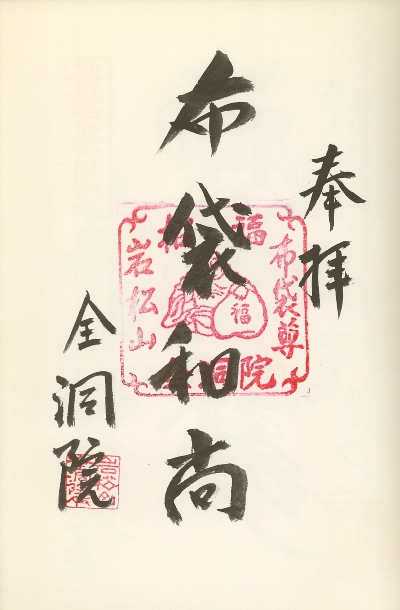 奉拝
布袋和尚
全洞院
福
布袋尊
岩松山
福
洞院